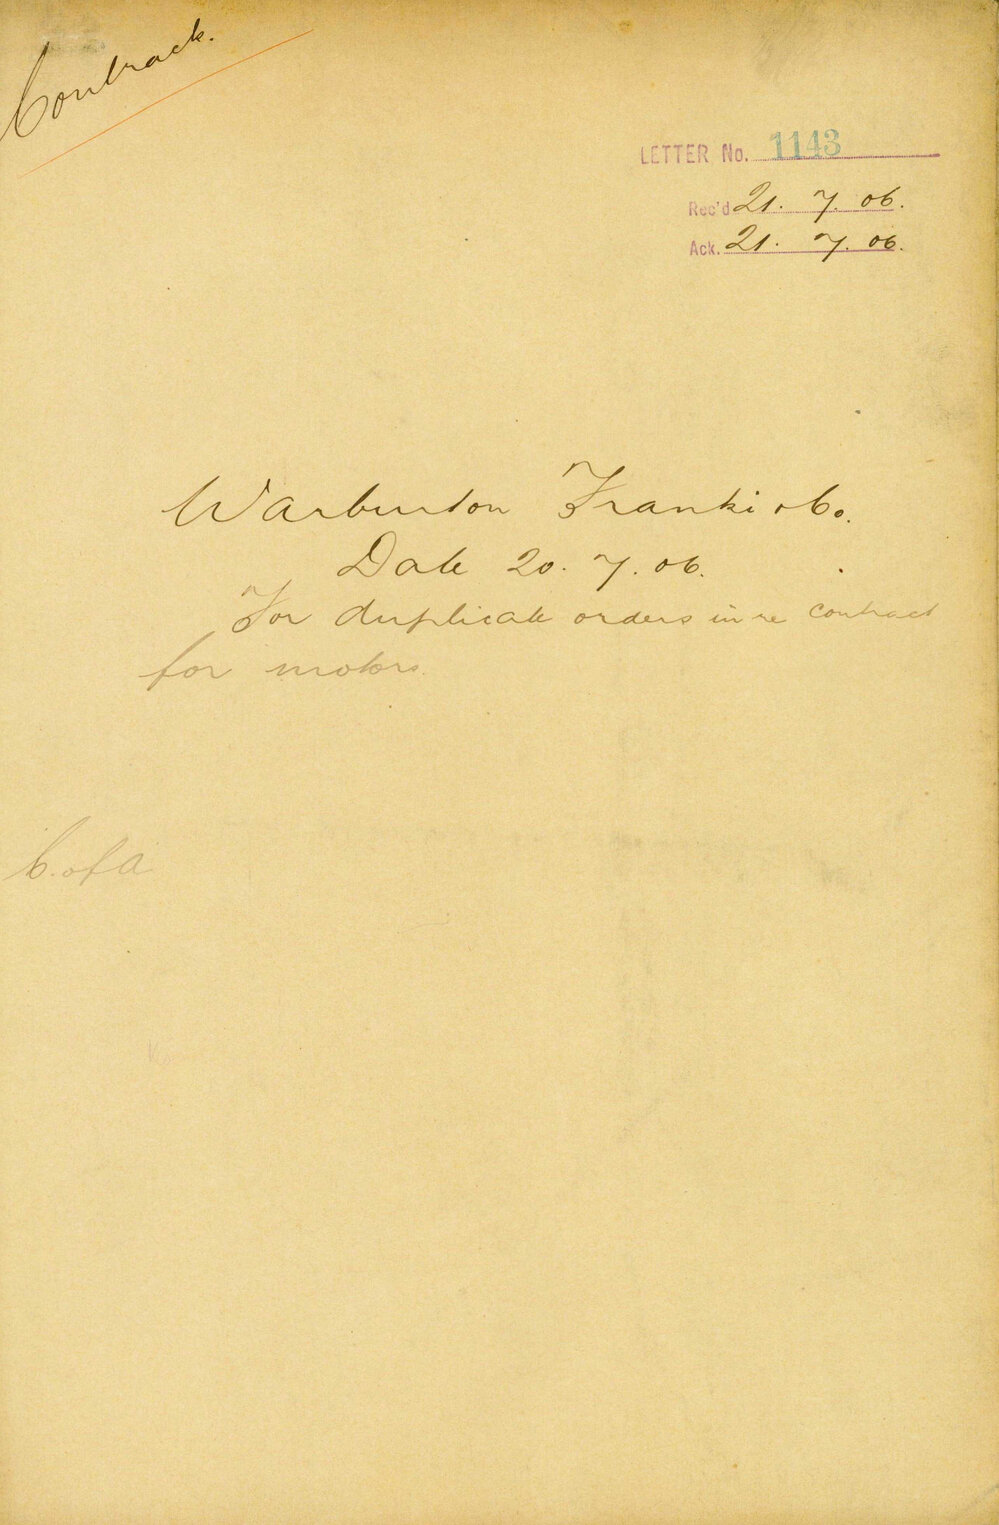 Contrack.
LETTER No. 1143
Rec'd 21. 7. 06.
Ack. 21. 7. 06.
Warburton Franki & Co.
Date 20. 7. 06.
For duplicate orders in re contract
for motors.
C. of A